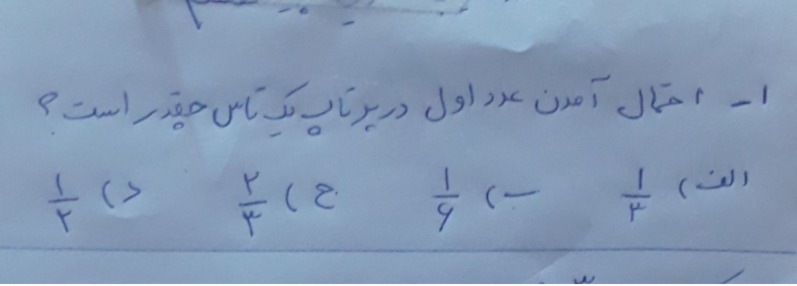 ۱- احتمال آمدن عدد اول در پرتاب یک تاس چقدر است؟
الف) ۱/۳ ب) ۱/۶ ج) ۲/۳ د) ۱/۲